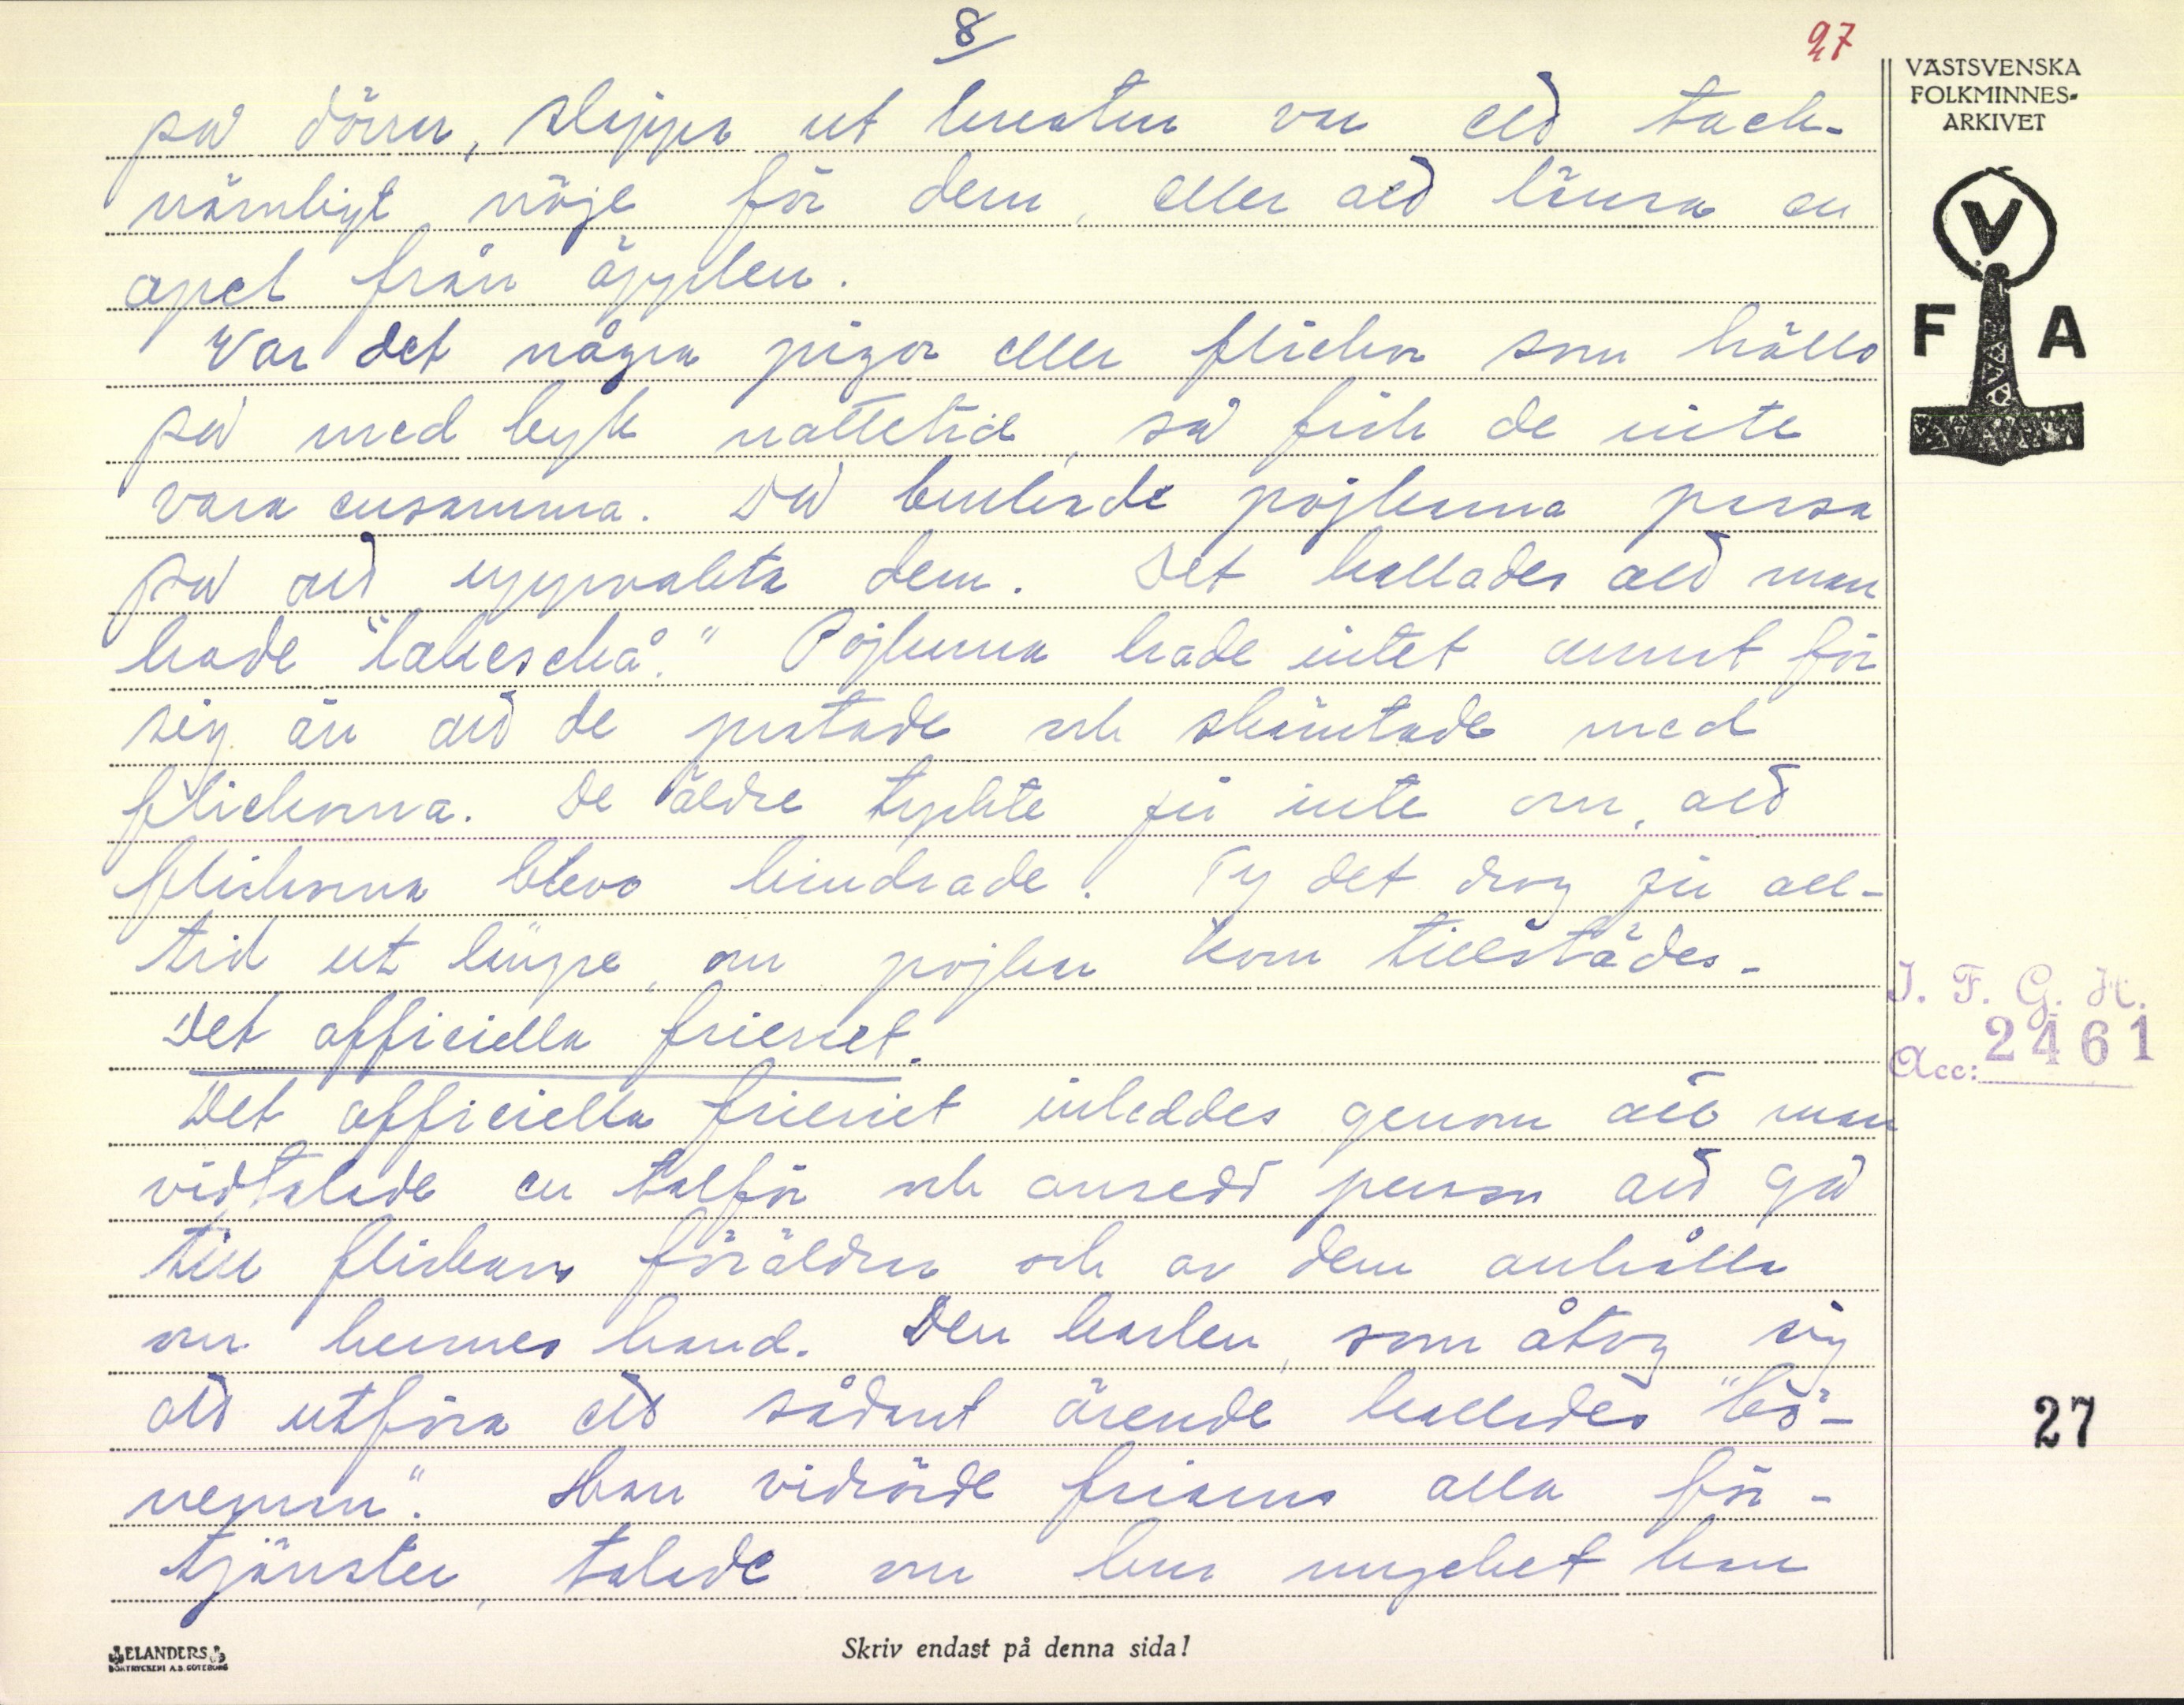 8
27
på dörren, släppa ut kreaturen var ett tack-
nämligt nöje för dem, eller att länsa en
apel från äpplen.
Var det några pigor eller flickor som höllo
på med byk nattetid, så fick de inte
vara ensamma. Då brukade pojkarna passa
på att uppvakta dem. Det kallades att man
hade "lakeskå." Pojkarna hade intet annat för
sig än att de pratade och skämtade med
flickorna. De äldre tyckte ju inte om, att
flickorna blevo hindrade. Ty det drog ju all-
tid ut längre, om pojken kom tillstädes.
Det officiella frieriet.
Det officiella frieriet inleddes genom att man
vidtalade en talför och ansedd person att gå
till flickans föräldrar och av dem anhålla
om hennes hand. Den karlen, som åtog sig
att utföra ett sådant ärende kallades "bö-
neman". Han vidrörde friarens alla för-
tjänster, talade om hur mycket han
VÄSTSVENSKA
FOLKMINNES-
ARKIVET
V
F A
I. F. G. H.
Acc: 2461
27
ELANDERS
BOKTRYCKERI A.B. GÖTEBORG
Skriv endast på denna sida!